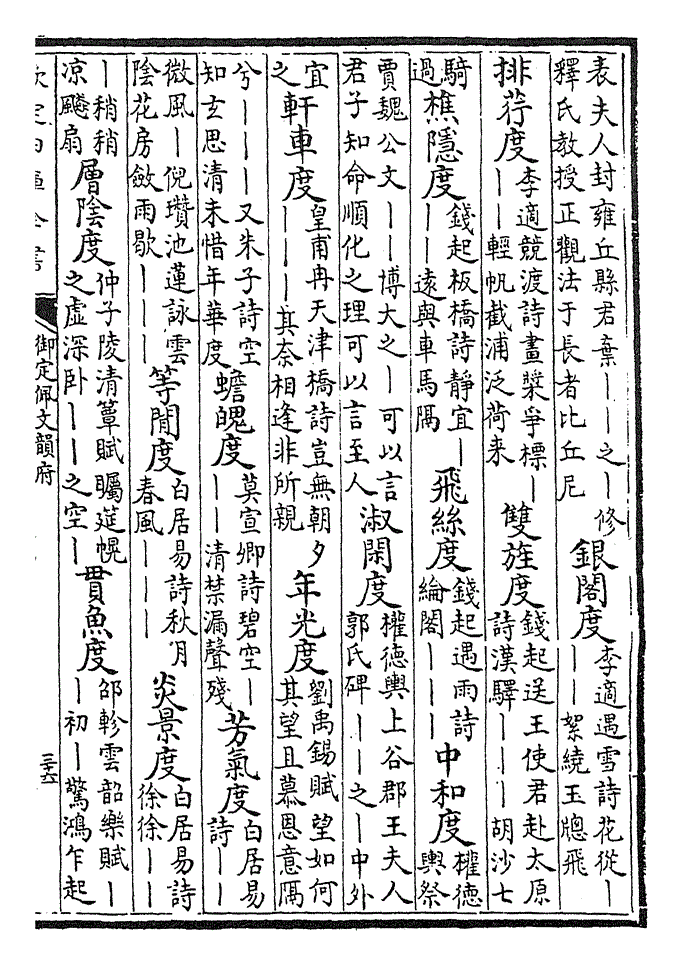 表夫人封雍丘縣君棄丨丨之丨修
釋氏教授正觀法于長者比丘尼
銀閣度
李適遇雪詩花從丨
丨丨絮繞玉牕飛
排荇度
李適競渡詩畫槳爭標丨
丨丨輕帆截浦泛荷来
雙旌度
錢起送王使君赴太原
詩漢驛丨丨丨胡沙七
騎
過
樵隱度
錢起板橋詩靜宜丨
丨丨遠與車馬隔
飛絲度
錢起遇雨詩
綸閣丨丨丨
中和度
權德
輿祭
賈魏公文丨丨博大之丨可以言
君子知命順化之理可以言至人
淑閑度
權德輿上谷郡王夫人
郭氏碑丨丨之丨中外
宜
之
軒車度
皇甫冉天津橋詩豈無朝夕
丨丨丨其奈相逢非所親
年光度
劉禹錫賦望如何
其望且慕恩意隔
兮丨丨丨又朱子詩空
知玄思清未惜年華度
蟾魄度
莫宣卿詩碧空丨
丨丨清禁漏聲殘
芳氣度
白居易
詩丨丨
微風丨倪瓚池蓮詠雲
陰花房斂雨歇丨丨丨
等閒度
白居易詩秋月
春風丨丨丨
炎景度
白居易詩
徐徐丨丨
丨稍稍
凉颸扇
層陰度
仲子陵清簟賦矚莚幌
之虛深卧丨丨之空丨
貫魚度
邵軫雲韶樂賦丨
丨初丨驚鴻乍起
御定佩文韻府
三十六